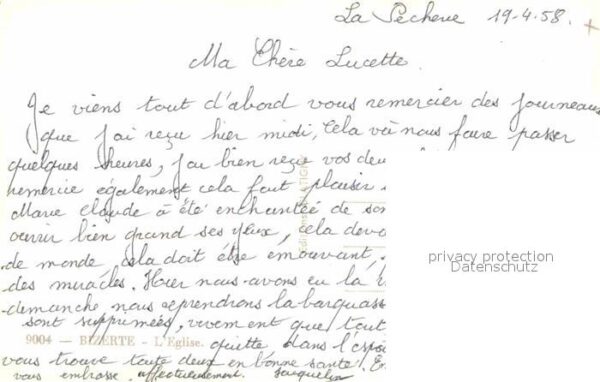 La Pêcherie 19-4-58.
Ma Chère Lucette.
Je viens tout d'abord vous remercier des journeaux
que j'ai reçu hier midi, cela và nous faire passer
quelques heures, j'ai bien reçu vos deu
remercie également cela fait plaisir
Marie Claude à été enchantée de son
ouvrir bien grand ses yeux, cela devo
de monde, cela doit être émouvant,
des miracles. Hier nous avons eu la
demanche nous reprendrons la barquas
sont supprimées, vivement que tout
9004 — BIZERTE - L'Eglise.
quiette dans l'espoi
vous trouve toute deux en bonne santé!
vous embrasse affectueusement. Jacqueline
privacy protection
Datenschutz